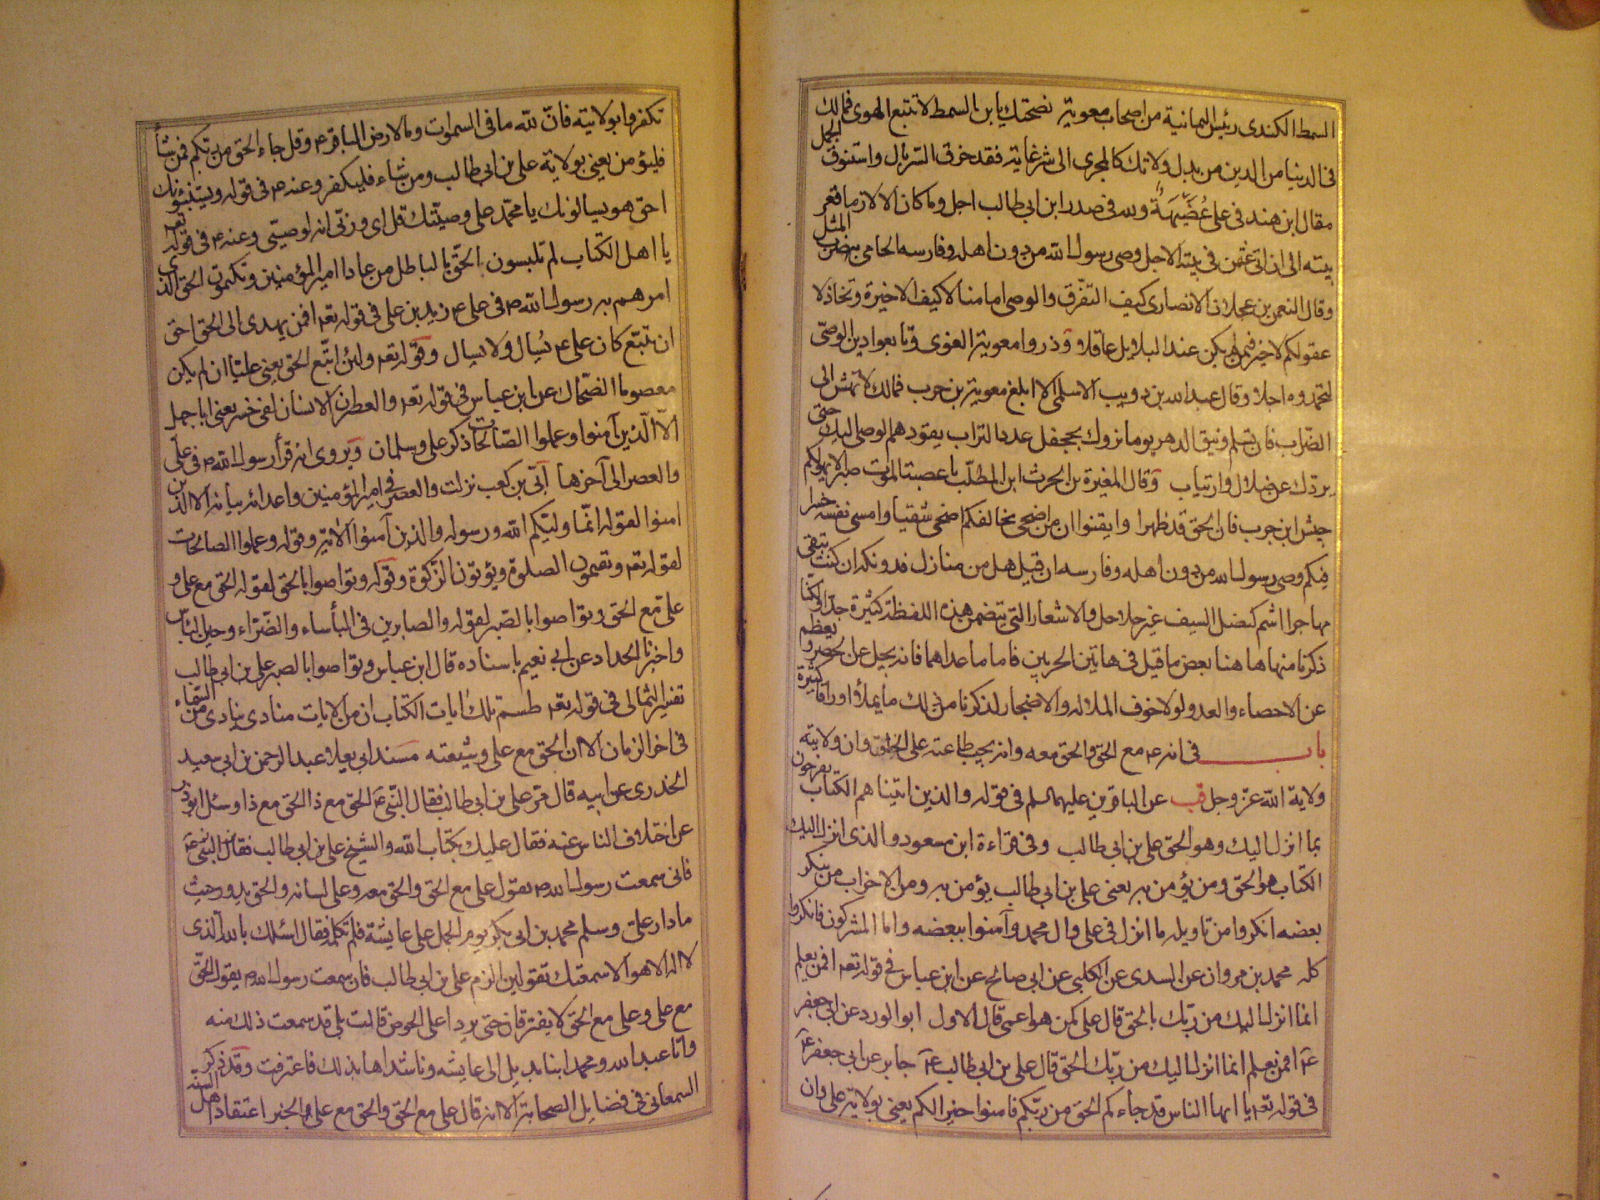 السمط الكندى رئيس اليمانية من اصحاب معوية نصحتك يا بن السمط لا تتبع الهوى فمالك
فى الدنيا من الدين من بدل ولا تك كالمجرى الى شر غاية فقد خرق السربال واستنوق الجمل
مقال ابن هند فى على عضيهة ولله فى صدر ابن ابى طالب اجل وما كان الا لازما قعر
بيته الى ان اتى عثمن فى بيته الاجل وصى رسول الله من دون اهله وفارسه الحامى به يضرب المثل
وقال النعمن بن عجلان الانصارى كيف التفرق والوصى امامنا لا كيف الا حيرة وتخاذلا
عقولكم لا خير فيمن لم يكن عند البلابل عاقلا وذروا معوية الغوى وتابعوا دين الوصى
لتحمدوه اجلا وقال عبد الله بن ذويب الاسلمى الا ابلغ معوية بن حرب فمالك لا تهش الى
الضراب فان تسلم وتبق الدهر يوما نزرك بجحفل عدد التراب يقودهم الوصى اليك حتى
يردك عن ضلال وارتياب وقال المغيرة بن الحرث ابن المطلب يا عصبة الموت صبرا لا يهولكم
جيش ابن حرب فان الحق قد ظهرا وايقنوا ان من اضحى يخالفكم اضحى شقيا وامسى نفسه خسرا
فيكم وصى رسول الله من دون اهله وفارسه ان قيل هل من منازل فدونكه ان كنت تبغى
مهاجرا اشم كنصل السيف غير حلاحل والاشعار التى تتضمن هذه اللفظة كثيرة جدا ولكنا
ذكرنا منها ها هنا بعض ما قيل فى هاتين الحربين فاما ما عداهما فانه يجل عن الحصر ويعظم
عن الاحصاء والعد ولولا خوف الملالة والاضجار لذكرنا من ذلك ما يملأ اوراقا كثيرة
باب فى انه ع مع الحق والحق معه وانه يجب طاعته على الخلق وان ولايته
ولاية الله عز وجل قب عن الباقرين عليهما السلم فى قوله والذين اتيناهم الكتاب يفرحون
بما انزل اليك وهو الحق على بن ابى طالب وفى قراءة ابن مسعود والذى انزل اليك
الكتاب هو الحق ومن يؤمن به يعنى على بن ابى طالب يؤمن به ومن الاحزاب من ينكر
بعضه انكروا من تاويله ما انزل فى على وال محمد وآمنوا ببعضه واما المشركون فانكروا
كله محمد بن مروان عن السدى عن الكلبى عن ابى صالح عن ابن عباس فى قوله تعه افمن يعلم
انما انزل اليك من ربك الحق قال على كمن هو اعمى قال الاول ابو الورد عن ابى جعفر
ع افمن يعلم انما انزل اليك من ربك الحق قال على بن ابى طالب ع جابر عن ابى جعفر ع
فى قوله تعه يا ايها الناس قد جاءكم الحق من ربكم فامنوا خيرا لكم يعنى بولاية على وان
تكفروا بولايته فان لله ما فى السموات وما الارض الباقر ع وقل جاء الحق من ربكم فمن شاء
فليؤمن يعنى بولاية على بن ابى طالب ومن شاء فليكفر وعنه ع فى قوله ويستنبئونك
احق هو يسالونك يا محمد على وصيتك قل اى وربى انه لوصيتى وعنه ع فى قوله تعه
يا اهل الكتاب لم تلبسون الحق بالباطل من عادا امير المؤمنين وتكتمون الحق الذى
امرهم به رسول الله ص فى على ع زيد بن على فى قوله تعه افمن يهدى الى الحق احق
ان يتبع كان على ع يسال ولا يسال وقوله تعه ولئن اتبع الحق يعنى عليا ان لم يكن
معصوما الضحاك عن ابن عباس فى قوله تعه والعصر ان الانسان لفى خسر يعنى ابا جهل
الا الذين آمنوا وعملوا الصالحات ذكر على وسلمان ويروى انه قرأ رسول الله ص فى على
والعصر الى آخرها ابى بن كعب نزلت والعصر فى امير المؤمنين واعدائه بيانه الا الذين
امنوا لقوله انما وليكم الله ورسوله والذين آمنوا الاية وقوله وعملوا الصالحات
لقوله تعه ويقيمون الصلوة ويؤتون الزكوة وقوله وتواصوا بالحق لقوله الحق مع على و
على مع الحق وتواصوا بالصبر لقوله والصابرين فى البأساء والضراء وحين البأس
واخبرنا الحداد عن ابى نعيم باسناده قال ابن عباس وتواصوا بالصبر على بن ابى طالب
تفسير الثمالى فى قوله تعه طسم تلك ايات الكتاب ان من الايات مناديا ينادى من السماء
فى اخر الزمان الا ان الحق مع على وشيعته مسند ابى يعلا عبد الرحمن بن ابى سعيد
الخدرى عن ابيه قال مر على بن ابى طالب فقال النبى ع الحق مع ذا الحق مع ذا وسئل ابو ذر
عن اختلاف الناس عنه فقال عليك بكتاب الله والشيخ على بن ابى طالب فقال النبى ع
فانى سمعت رسول الله ص يقول على مع الحق والحق معه وعلى لسانه والحق يدور حيث
ما دار على وسلم محمد بن ابى بكر يوم الجمل على عايشة فلم تكلمه فقال اسئلك بالله الذى
لا اله الا هو الا سمعتك تقولين الزم على بن ابى طالب فان سمعت رسول الله ص يقول الحق
مع على وعلى مع الحق لا يفترقان حتى يردا على الحوض قالت بلى قد سمعت ذلك منه
واتا عبد الله ومحمد ابنا بديل الى عايشه وناشداها بذلك فاعترفت وقد ذكر
السمعانى فى فضايل الصحابة الا انه قال على مع الحق والحق مع على والخبر اعتقاد اهل السنة